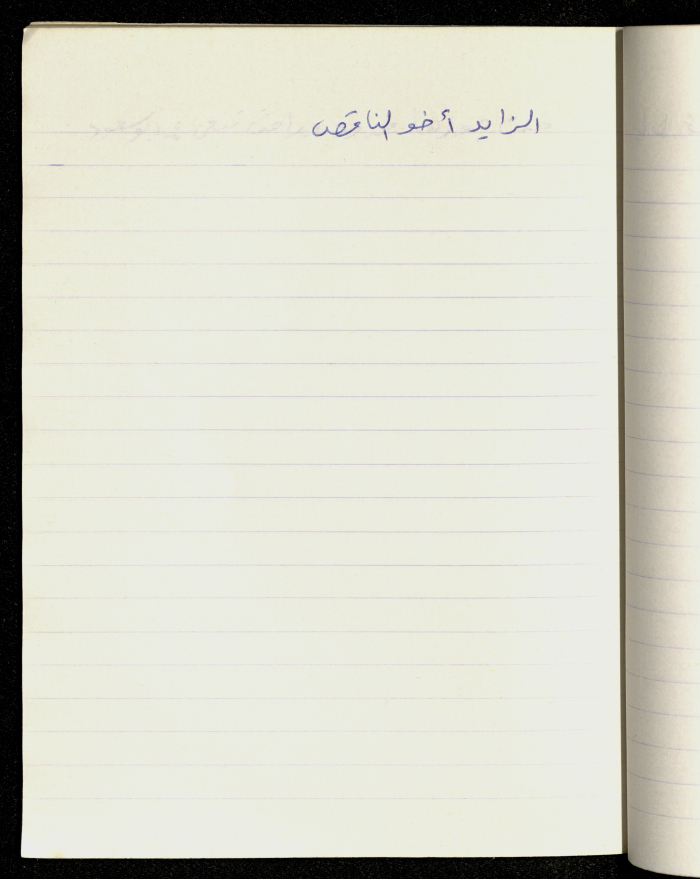 الزايد أخو الناقص